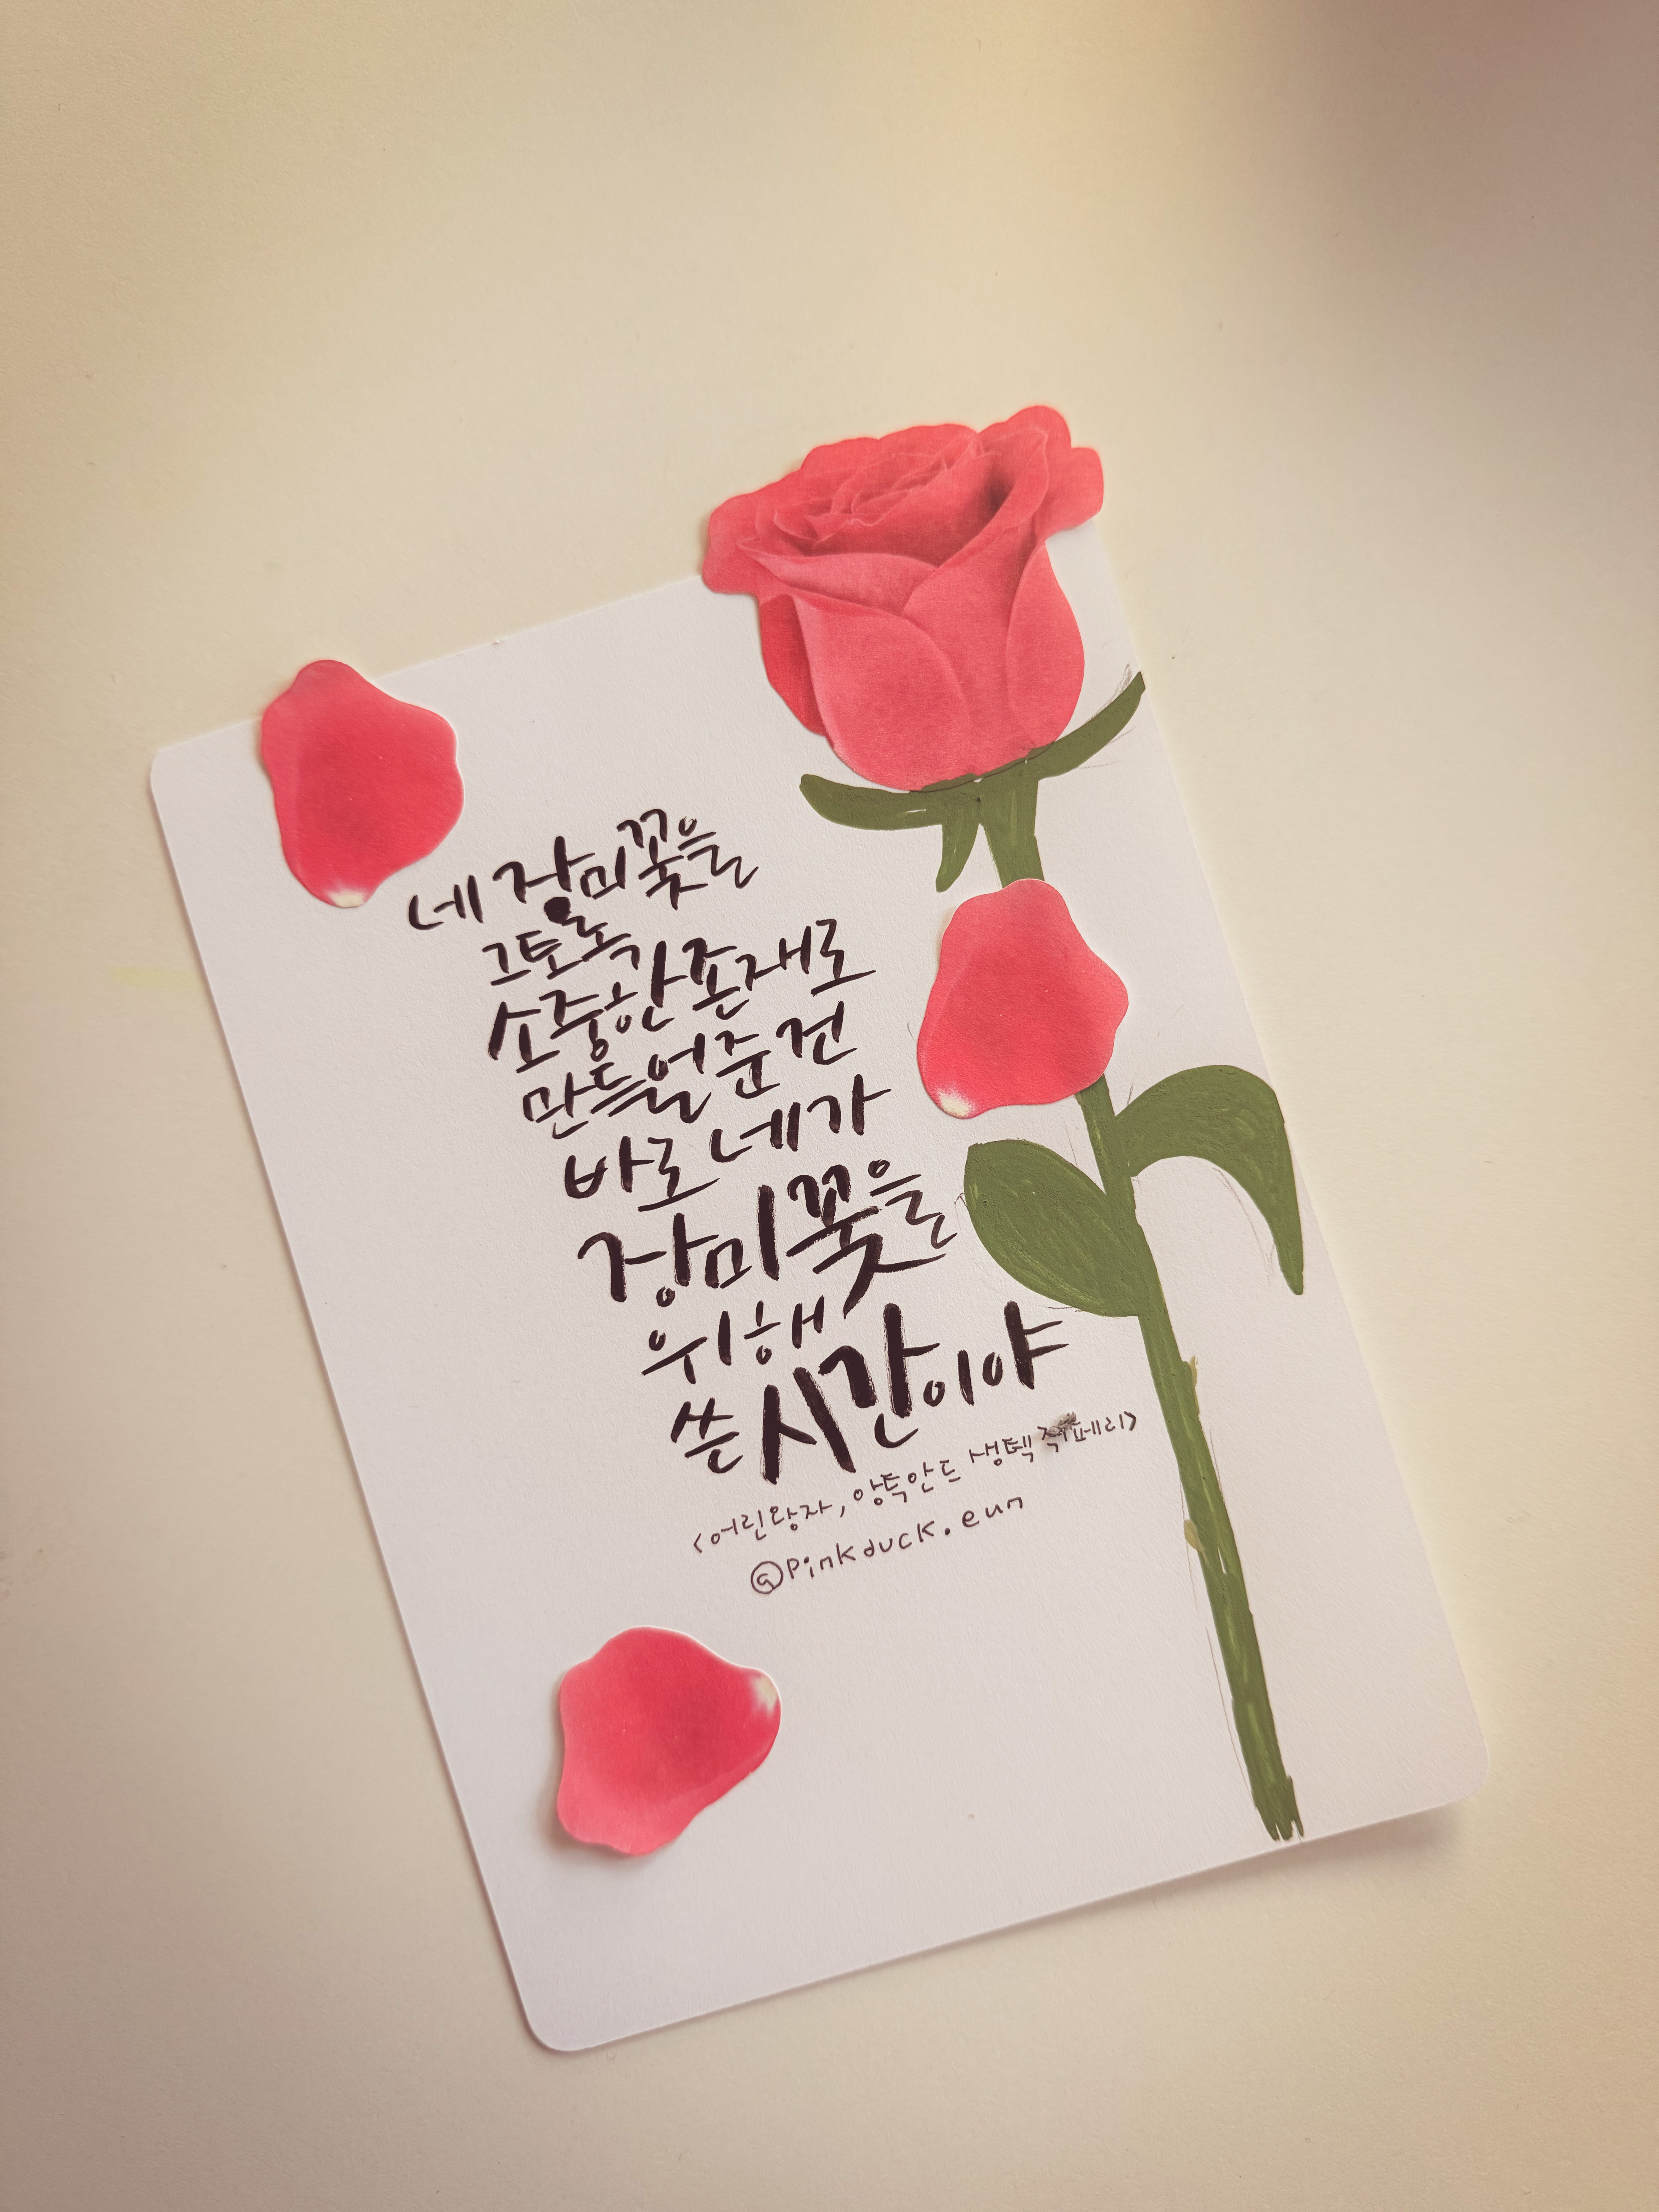 네 장미꽃을
그토록
소중한 존재로
만들어준 건
바로 네가
장미꽃을
위해
쓴 시간이야
<어린왕자, 앙투안드 생텍쥐페리>
@pinkduck.eun